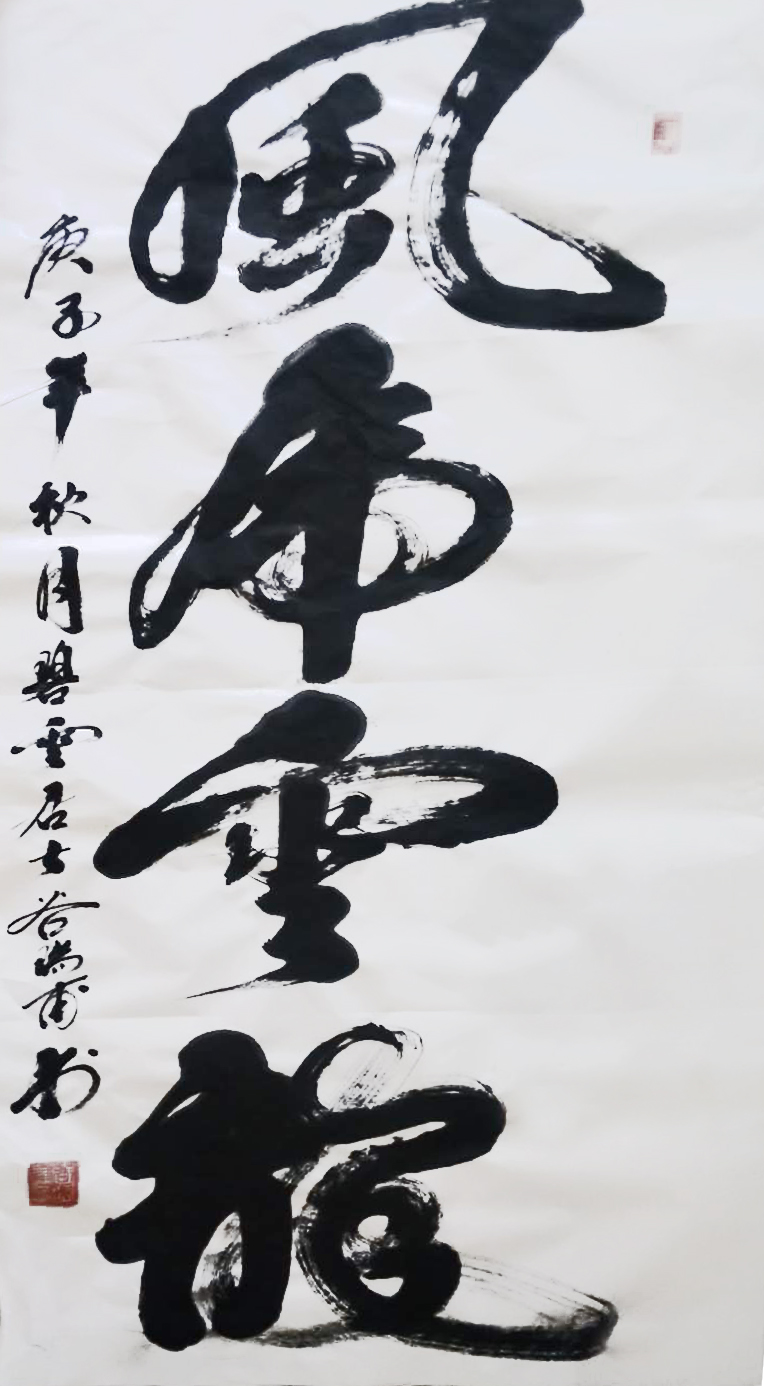 風虎雲龍
庚子年秋月碧雲居士谷瑞甫書